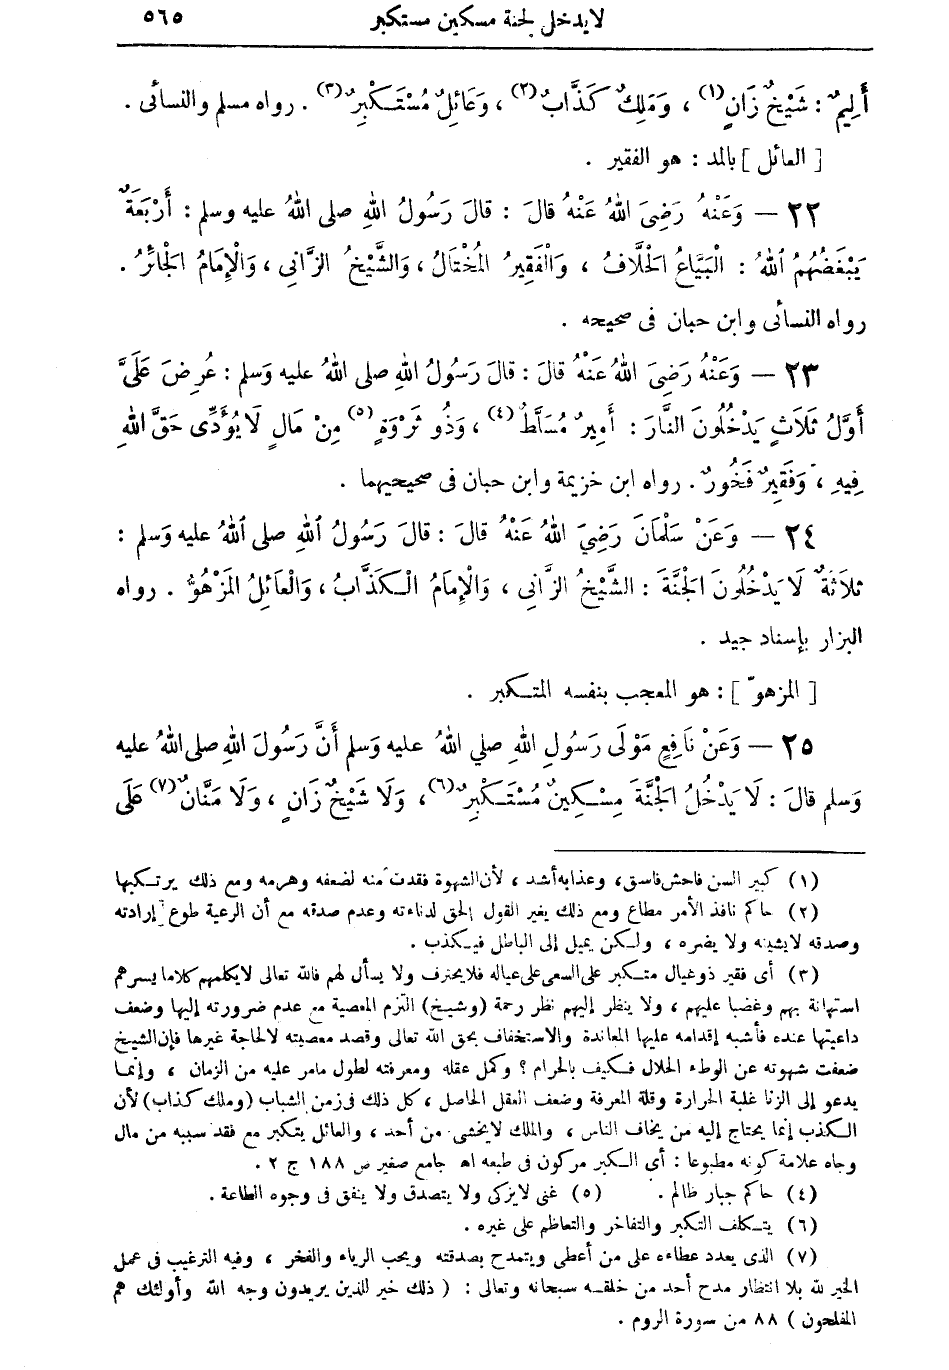 لا يدخل لجنة مسكين مستكبر ٥٦٥
أَلِيمٌ : شَيْخٌ زَانٍ (١) ، وَمَلِكٌ كَذَّابٌ (٢) ، وَعَائِلٌ مُسْتَكْبِرٌ (٣) . رواه مسلم والنسائى .
[ العائل ] بالمد : هو الفقير .
٢٢ — وَعَنْهُ رَضِىَ اللهُ عَنْهُ قالَ : قالَ رَسُولُ اللهِ صلى اللهُ عليه وسلم : أَرْبَعَةٌ
يَبْغَضُهُمُ اللهُ : الْبَيَّاعُ الحَلَّافُ ، وَالْفَقِيرُ المُخْتَالُ ، وَالشَّيْخُ الزَّانِى ، وَالْإِمَامُ الجَائِرُ .
رواه النسائى وابن حبان فى صحيحه .
٢٣ — وَعَنْهُ رَضِىَ اللهُ عَنْهُ قالَ : قالَ رَسُولُ اللهِ صلى اللهُ عليه وَسلم : عُرِضَ عَلَىَّ
أَوَّلُ ثَلَاثٍ يَدْخُلُونَ النَّارَ : أَمِيرٌ مُسَلَّطٌ (٤) ، وَذُو ثَرْوَةٍ (٥) مِنْ مَالٍ لَا يُؤَدِّى حَقَّ اللهِ
فِيهِ ، وَفَقِيرٌ فَخُورٌ . رواه ابن خزيمة وابن حبان فى صحيحيهما .
٢٤ — وَعَنْ سَلْمَانَ رَضِيَ اللهُ عَنْهُ قالَ : قالَ رَسُولُ اللهِ صلى اللهُ عليه وَسلم :
ثَلَاثَةٌ لَا يَدْخُلُونَ الجَنَّةَ : الشَّيْخُ الزَّانِى ، وَالْإِمَامُ الْكَذَّابُ ، وَالْعَائِلُ المَزْهُوُّ . رواه
البزار بإسناد جيد .
[ المزهوّ ] : هو المعجب بنفسه المتكبر .
٢٥ — وَعَنْ نَافِعٍ مَوْلَى رَسُولِ اللهِ صلي اللهُ عليه وَسلم أَنَّ رَسُولَ اللهِ صلى اللهُ عليه
وَسلم قالَ : لَا يَدْخُلُ الجَنَّةَ مِسْكِينٌ مُسْتَكْبِرٌ (٦) ، وَلَا شَيْخٌ زَانٍ ، وَلَا مَنَّانٌ (٧) عَلَى
(١) كبير السن فاحش فاسق ، وعذابه أشد ، لأن الشهوة فقدت منه لضعفه وهرمه ومع ذلك يرتكبها
(٢) حاكم نافذ الأمر مطاع ومع ذلك يغير القول الحق لدناءته وعدم صدقه مع أن الرعية طوع إرادته
وصدقه لا يشينه ولا يضره ، ولكن يميل إلى الباطل فيكذب .
(٣) أى فقير ذو عيال متكبر على السعى على عياله فلا يحترف ولا يسأل لهم فالله تعالى لا يكلمهم كلاما يسرهم
استهانة بهم وغضبا عليهم ، ولا ينظر إليهم نظر رحمة (وشيخ) التزم المعصية مع عدم ضرورته إليها وضعف
داعيتها عنده فأشبه إقدامه عليها المعاندة والاستخفاف بحق الله تعالى وقصد معصيته لا لحاجة غيرها فإن الشيخ
ضعفت شهوته عن الوطء الحلال فكيف بالحرام ؟ وكمل عقله ومعرفته لطول ما مر عليه من الزمان ، وإنما
يدعو إلى الزنا غلبة الحرارة وقلة المعرفة وضعف العقل الحاصل ، كل ذلك فى زمن الشباب (وملك كذاب) لأن
الكذب إنما يحتاج إليه من يخاف الناس ، والملك لا يخشى من أحد ، والعائل يتكبر مع فقد سببه من مال
وجاه علامة كونه مطبوعا : أي الكبر مركون فى طبعه اه جامع صغير ص ١٨٨ ج ٢ .
(٤) حاكم جبار ظالم . (٥) غنى لا يزكى ولا يتصدق ولا ينفق فى وجوه الطاعة .
(٦) يتكلف التكبر والتفاخر والتعاظم على غيره .
(٧) الذى يعدد عطاءه على من أعطى ويتمدح بصدقته ويحب الرياء والفخر ، وفيه الترغيب فى عمل
الخير لله بلا انتظار مدح أحد من خلقه سبحانه وتعالى : ( ذلك خير للذين يريدون وجه الله وأولئك هم
المفلحون ) ٨٨ من سورة الروم .